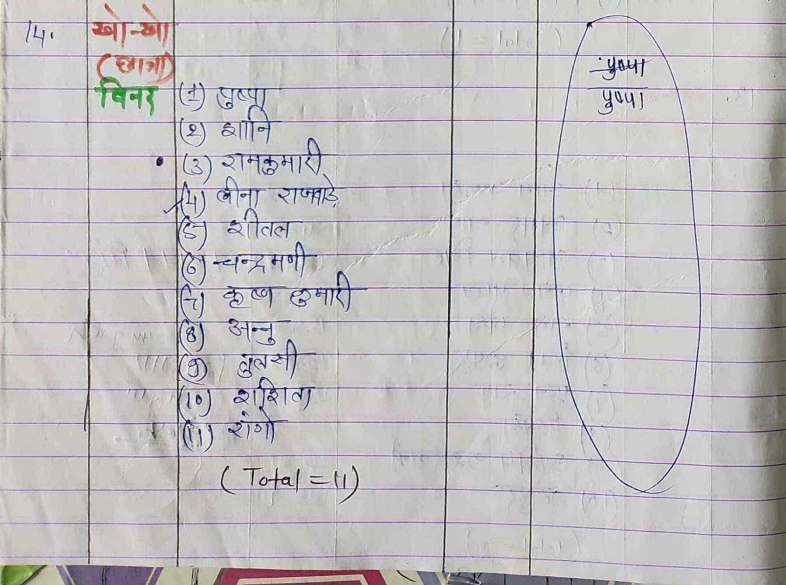 14. खो-खो
(छात्रा)
विनर (1) पुष्पा
(2) शानि
(3) रामकुमारी
(4) लीना राजवाड़े
(5) शीतल
(6) चन्द्रमणी
(7) कृष्ण कुमारी
(8) अन्नु
(9) तुलसी
(10) शशिता
(11)
(Total = 11)
पुष्पा
पुष्पा